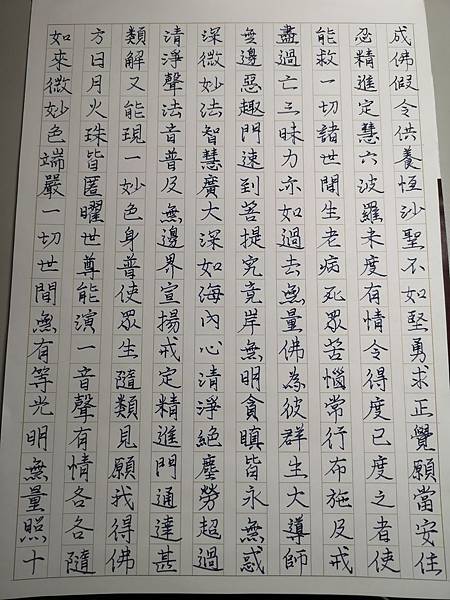 如來微妙色端嚴一切世間無有等光明無量照十
方日月火珠皆匿曜世尊能演一音聲有情各各隨
類解又能現一妙色身普使眾生隨類見願我得佛
清淨聲法音普及無邊界宣揚戒定精進門通達甚
深微妙法智慧廣大深如海內心清淨絕塵勞超過
無邊惡趣門速到菩提究竟岸無明貪瞋皆永無惑
盡過亡三昧力亦如過去無量佛為彼群生大導師
能救一切諸世間生老病死眾苦惱常行布施及戒
忍精進定慧六波羅未度有情令得度已度之者使
成佛假令供養恆沙聖不如堅勇求正覺願當安住